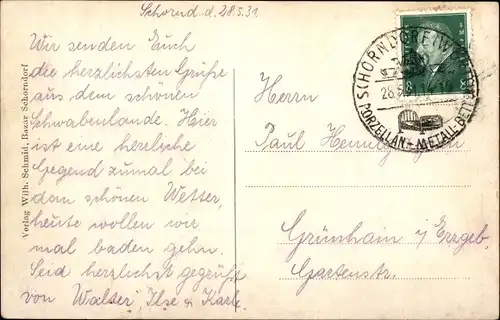 Schornd. d. 28.5.31
Wir senden Euch
die herzlichsten Grüße
aus dem schönen
Schwabenlande. Hier
ist eine herrliche
Gegend zumal bei
dem schönen Wetter,
heute wollen wir
mal baden gehn.
Seid herzlichst gegrüßt
von Walter, Ilse & Karle.
Verlag Wilh. Schmid, Bazar Schorndorf
SCHORNDORF (WÜRTT)
PORZELLAN-METALL-BETT
Herrn
Paul
Grünhain i/Erzgeb.
Gartenstr.